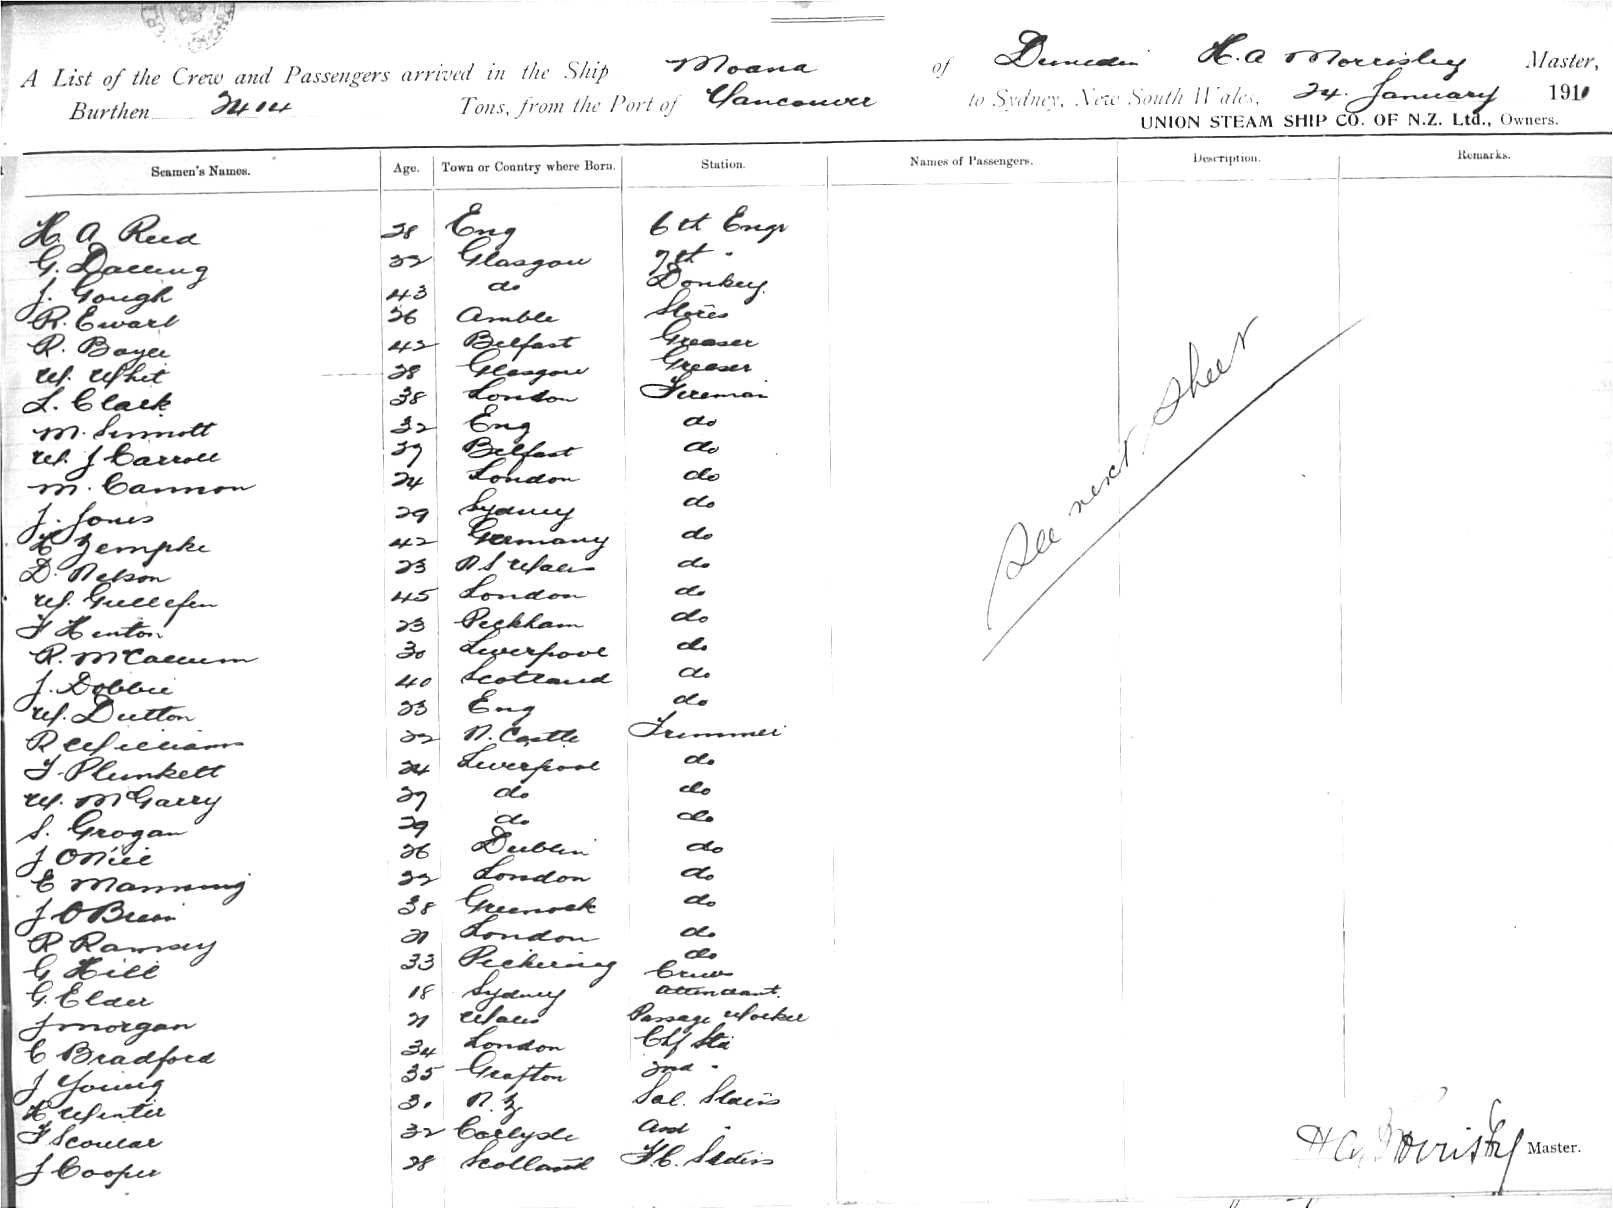 A List of the Crew and Passengers arrived in the Ship Moana of Dunedin H. A Morrisby Master,
Burthen 2414 Tons, from the Port of Vancouver to Sydney, New South Wales, 24 January 1911
UNION STEAM SHIP CO. OF N.Z. Ltd., Owners.
Seamen's Names. Age. Town or Country where Born. Station. Names of Passengers. Description. Remarks.
H. A Reed 28 Eng 6th Engr
G. Dalling 32 Glasgow 7th "
J. Gough 43 do Donkey
R. Ewart 26 Amble Stores
R. Boyle 42 Belfast Greaser
W. Whit 28 Glasgow Greaser
L. Clark 38 London Fireman
M. Sinnott 32 Eng do
W. J Carroll 37 Belfast do
M. Cannon 24 London do
J. Jones 29 Sydney do
H Zempke 42 Germany do
D. Nelson 23 N S Wales do
W. 45 London do
F Henton 23 Peckham do
R. McCallum 30 Liverpool do
J. Dobbie 40 Scotland do
W. Dutton 23 Eng do
R Williams 22 N. Castle Trimmer
T. Plunkett 24 Liverpool do
W. McGarry 27 do do
S. Grogan 29 do do
J O'Neil 26 Dublin do
E Manning 22 London do
J O'Brien 38 Greenock do
R Ramsey 21 London do
G Hill 33 Pickering do
G. Elder 18 Sydney Crews attendant.
J Morgan 21 Wales Passage Worker
C Bradford 34 London Chf Std
J Young 35 Grafton 2nd "
H Winter 31 N. Z Sal. Stwds
F Scoular 32 Carlyde and "
J Cooper 28 Scotland F.C.
See next sheet
H A Morrisby Master.